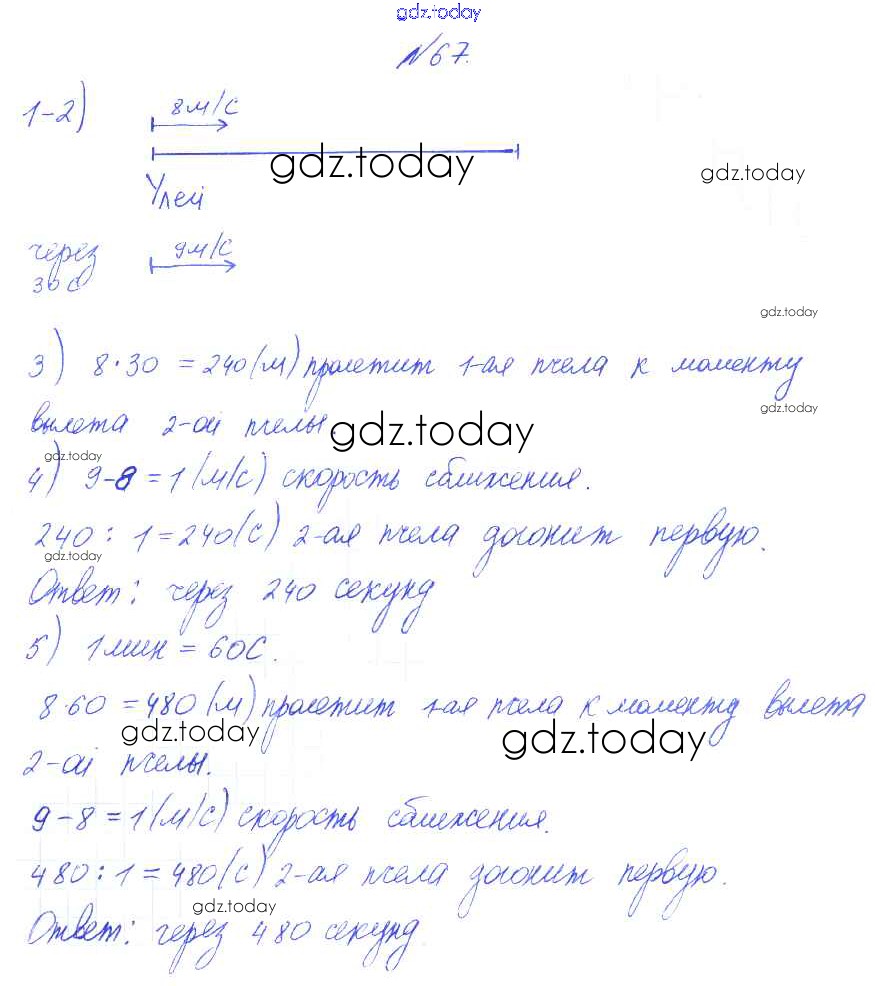 gdz.today
№67.
1-2) 8м/с
gdz.today
gdz.today
Улей
через 9м/с
30 с
gdz.today
3) 8·30 = 240 (м) пролетит 1-ая пчела к моменту
вылета 2-ой пчелы.
gdz.today
gdz.today
gdz.today
4) 9-8 = 1 (м/с) скорость сближения.
240 : 1 = 240 (с) 2-ая пчела догонит первую.
gdz.today
Ответ: через 240 секунд
5) 1 мин = 60с.
8·60 = 480 (м) пролетит 1-ая пчела к моменту вылета
gdz.today
gdz.today
2-ой пчелы.
9 - 8 = 1 (м/с) скорость сближения.
480 : 1 = 480 (с) 2-ая пчела догонит первую.
gdz.today
Ответ: через 480 секунд.